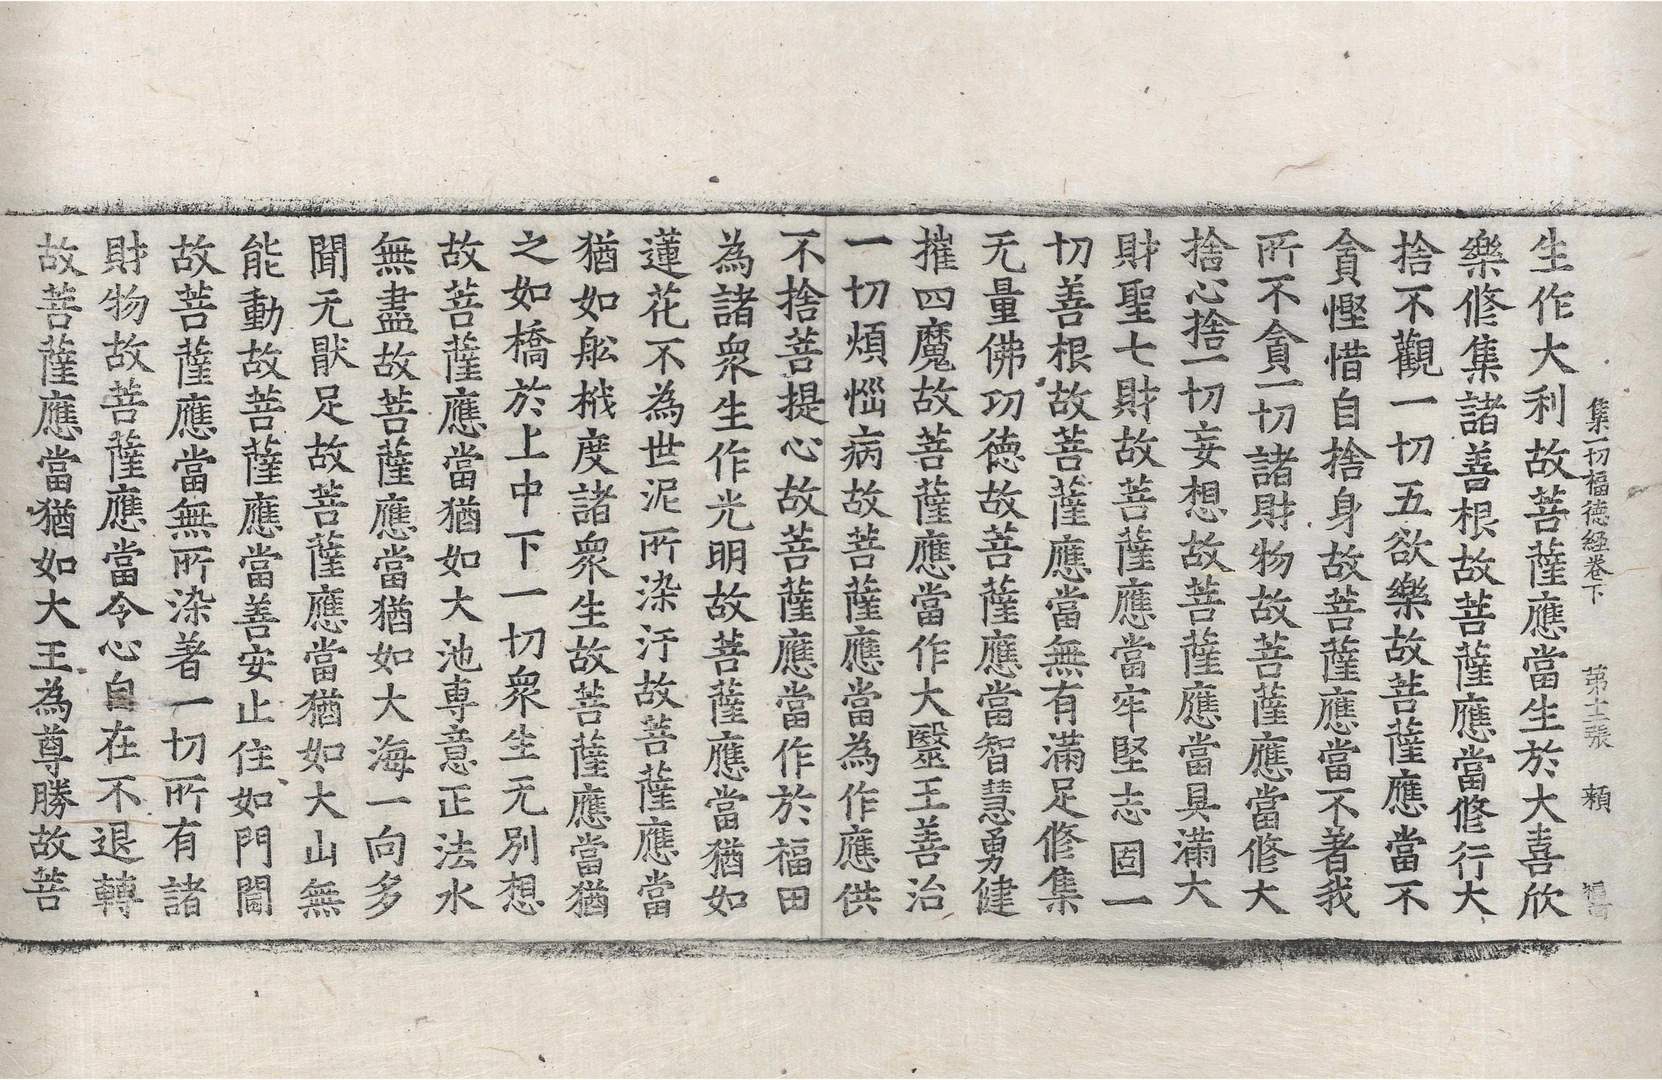 集一切福德経卷下 第十二張 賴
生作大利故菩薩應當生於大喜欣
樂修集諸善根故菩薩應當修行大
捨不觀一切五欲樂故菩薩應當不
貪慳惜自捨身故菩薩應當不著我
所不貪一切諸財物故菩薩應當修大
捨心捨一切妄想故菩薩應當具滿大
財聖七財故菩薩應當牢堅志固一
切善根故菩薩應當無有滿足修集
无量佛功德故菩薩應當智慧勇健
摧四魔故菩薩應當作大醫王善治
一切煩惱病故菩薩應當為作應供
不捨菩提心故菩薩應當作於福田
為諸衆生作光明故菩薩應當猶如
蓮花不為世泥所染汙故菩薩應當
猶如舩栰度諸衆生故菩薩應當猶
之如橋於上中下一切衆生无別想
故菩薩應當猶如大池専意正法水
無盡故菩薩應當猶如大海一向多
聞无猒足故菩薩應當猶如大山無
能動故菩薩應當善安止住如門閫
故菩薩應當無所染著一切所有諸
財物故菩薩應當令心自在不退轉
故菩薩應當猶如大王為尊勝故菩